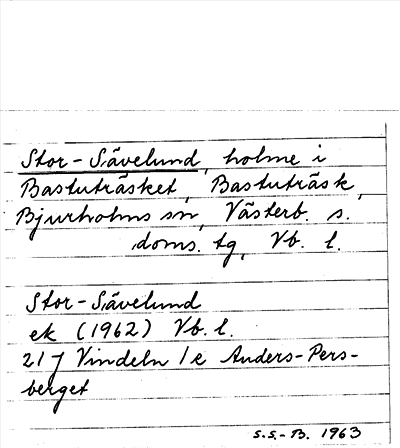 Stor-Sävelund, holme i
Bastuträsket, Bastuträsk,
Bjurholms sn, Västerb. s.
doms. tg, Vb. l.
Stor-Sävelund
ek (1962) Vb. l.
21 J Vindeln 1e Anders-Pers-
berget
S.S.-B. 1963